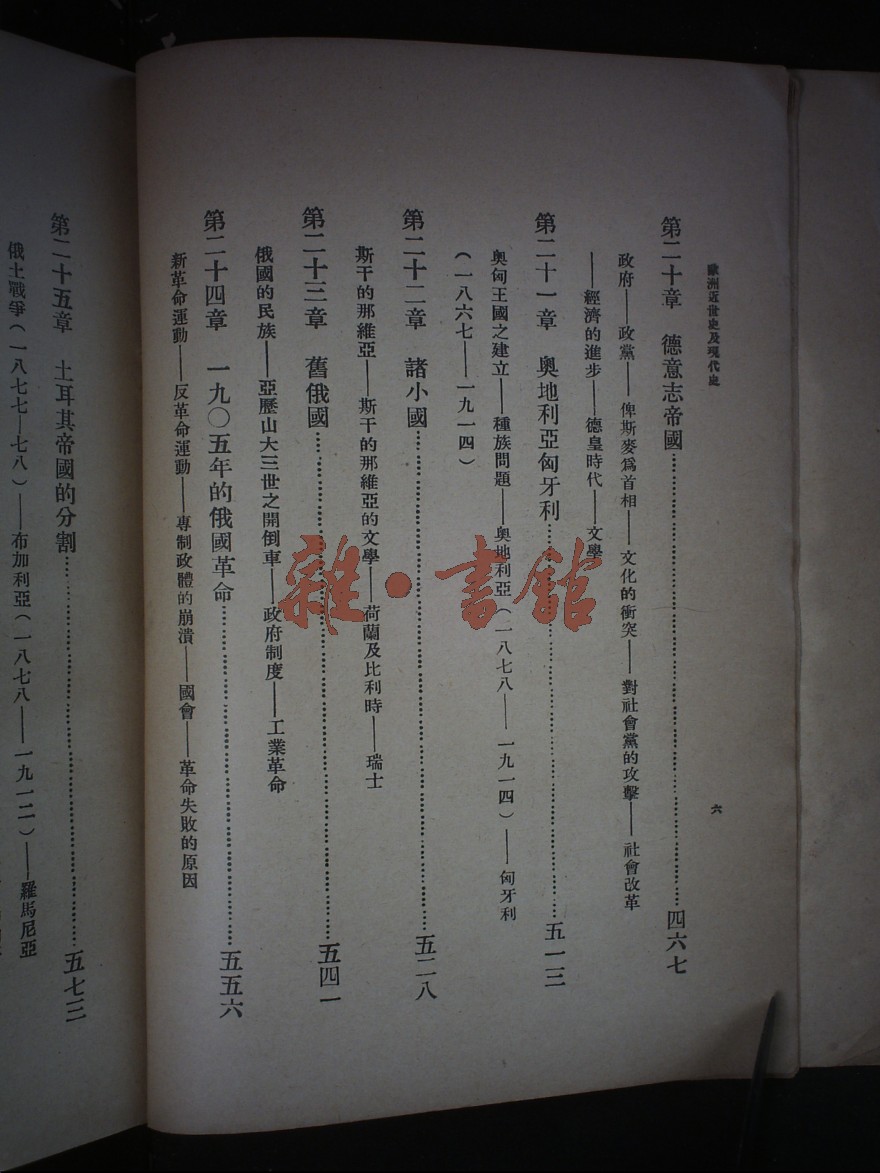 歐洲近世史及現代史
六
第二十章　德意志帝國……四六七
政府——政黨——俾斯麥爲首相——文化的衝突——對社會黨的攻擊——社會改革
——經濟的進步——德皇時代——文學
第二十一章　奧地利亞匈牙利……五一三
奧匈王國之建立——種族問題——奧地利亞（一八七八——一九一四）——匈牙利
（一八六七——一九一四）
第二十二章　諸小國……五二八
斯干的那維亞——斯干的那維亞的文學——荷蘭及比利時——瑞士
第二十三章　舊俄國……五四一
俄國的民族——亞歷山大三世之開倒車——政府制度——工業革命
第二十四章　一九〇五年的俄國革命……五五六
新革命運動——反革命運動——專制政體的崩潰——國會——革命失敗的原因
第二十五章　土耳其帝國的分割……五七三
俄土戰爭（一八七七—七八）——布加利亞（一八七八——一九一二）——羅馬尼亞
雜·書館